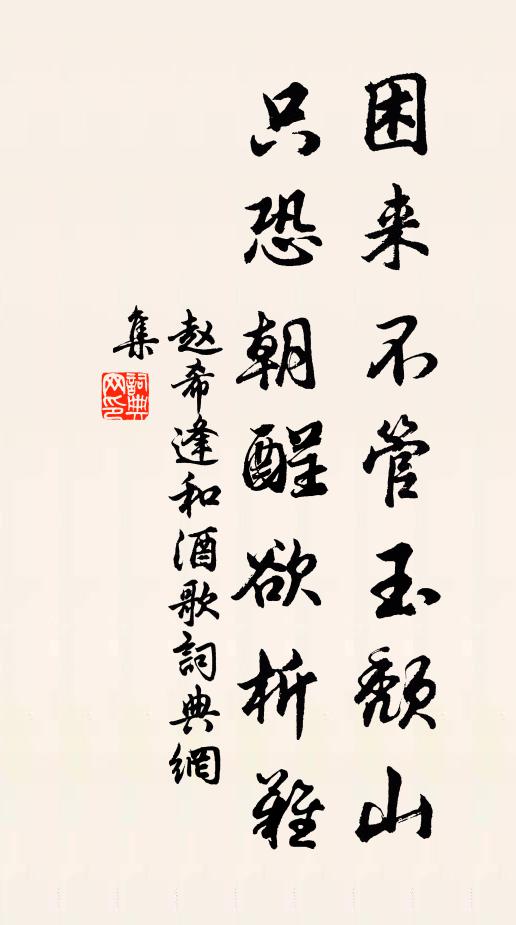 困来不管玉颓山
只恐朝酲欲析难
赵希逢和酒歌詞典網
集
詞典网印